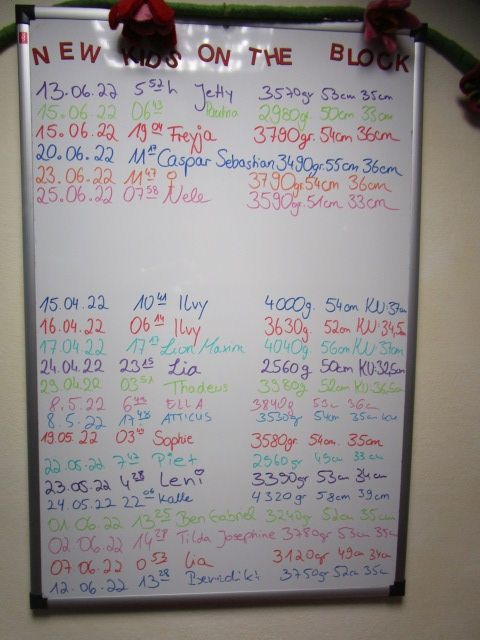 NEW KIDS ON THE BLOCK
13.06.22 5 52 h Jetty 3570gr 53cm 35cm
15.06.22 06 43 Paulina 2980g. 50cm 33cm
15.06.22 19 04 Freyja 3790gr. 54cm 36cm
20.06.22 11 Caspar Sebastian 3490gr. 55cm 36cm
23.06.22 11 47 ♀ 3790gr. 54cm 36cm
25.06.22 07 58 Nele 3590gr. 51cm 33cm
15.04.22 10 41 Ilvy 4000g. 54cm KU:37cm
16.04.22 06 14 Ilvy 3630g. 52cm KU:34,5cm
17.04.22 17 Lion Maxim 4040g. 56cm KU 37cm
24.04.22 23 15 Lia 2560g 50cm KU:32,5cm
29.04.22 03 57 Thadeus 3980g 52cm KU:36,5cm
8.5.22 6 ELLA 3840g 53cm 36cm
8.5.22 17 48 ATTICUS 3530gr 54cm 35cm
19.05.22 03 Sophie 3580gr 54cm. 35cm
22.05.22 7 42 Piet 2560gr 49cm 33cm
23.05.22 4 38 Leni 3390gr 53cm 34cm
24.05.22 22 06 Kalle 4320gr 58cm 39cm
01.06.22 13 25 Ben Gabriel 3240gr 52cm 35cm
02.06.22 14 28 Tilda Josephine 3780gr 53cm 35cm
07.06.22 0 53 Lia 3120gr 49cm 34cm
12.06.22 13 28 Benedikt 3750gr 52cm 35cm